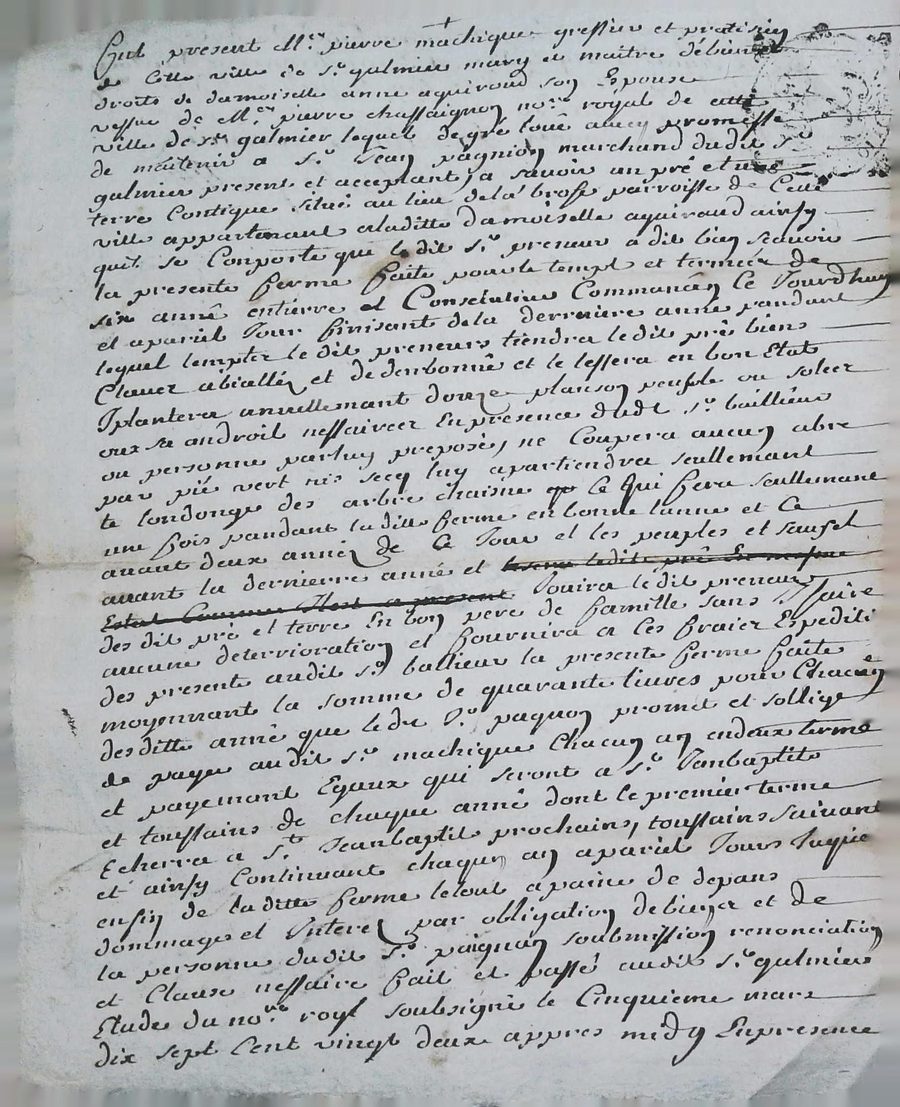 fut présent Mre pierre machique greffier et praticien
de cette ville de st galmier mary et maitre débiens
droits de damoiselle anne aquiroud son Epouse
vefsue de Mre pierre chassaignon nore royal de cette
ville de st galmier lequel de gré loué avecq promesse
de maitenir a sr Jean pagnion marchand dudit st
galmier present et acceptant, a savoir un pré et une
terre Contigue situé au lieu dela brosse parroisse de Cette
ville appartenant a laditte damoiselle aquiraud ainsy
quil se Comporte que ledit sr preneur a dit bien scavoir
la presente ferme faite pour le temps et termee de
six anné entierre et Consetutive Commancén Ce Jourdhuy
et apariel Jour finisant dela derreniere anné pandant
lequel temps le dit preneurs tiendra ledit pré biens
Clauer abiallén et de derbonné et le lessera en bon Etat
Iplantera anuellemant douze planson peuple ou soleer
aux sa androit nessaireer En presence dudt sr baillieur
ou personne par luy preposée, ne Coupera aucun abre
par pié vert nis secq luy apartiendra seullemant
te londonge des arbre chaisne Ce qui fera seullemant
une fois pandant laditte ferme en bonne lunne et Ce
avant deux annén de Ce Jour et les peuples et sausel
avant la dernierre anné et lesera ledit pré En mesme
Estat Comme Ilest a present Jouira ledit preneur
des dit pré et terre En bon pere de famille sans y faire
aucune deterrioration et fournira a Ces fraier Expediti
des present audit sr ballieur la presente ferme faite
moyennant la somme de quarante livres pour Chacun
desditte anné que ledit sr pagnon promet et sollige
de paye audit sr machique Chacun an en deux terme
et payemant Egaux qui seront a st Janbaptite
et toussains de chaque anné dont le premier terme
Echerra a st Jeanbaptit prochains, toussains suivant
et ainsy Continuant chaqun an apariel Jours Juque
enfin de laditte ferme le tout apaine de depans
dommages et Interet par obligation debiens et de
la personne dudit sr paignon soubmission renonciation
et Clause nessaire fait et passé audit st galmier
Etude du nore royl soubsigné le Cinquieme mars
dix sept Cent vingt deux appres midy En presence